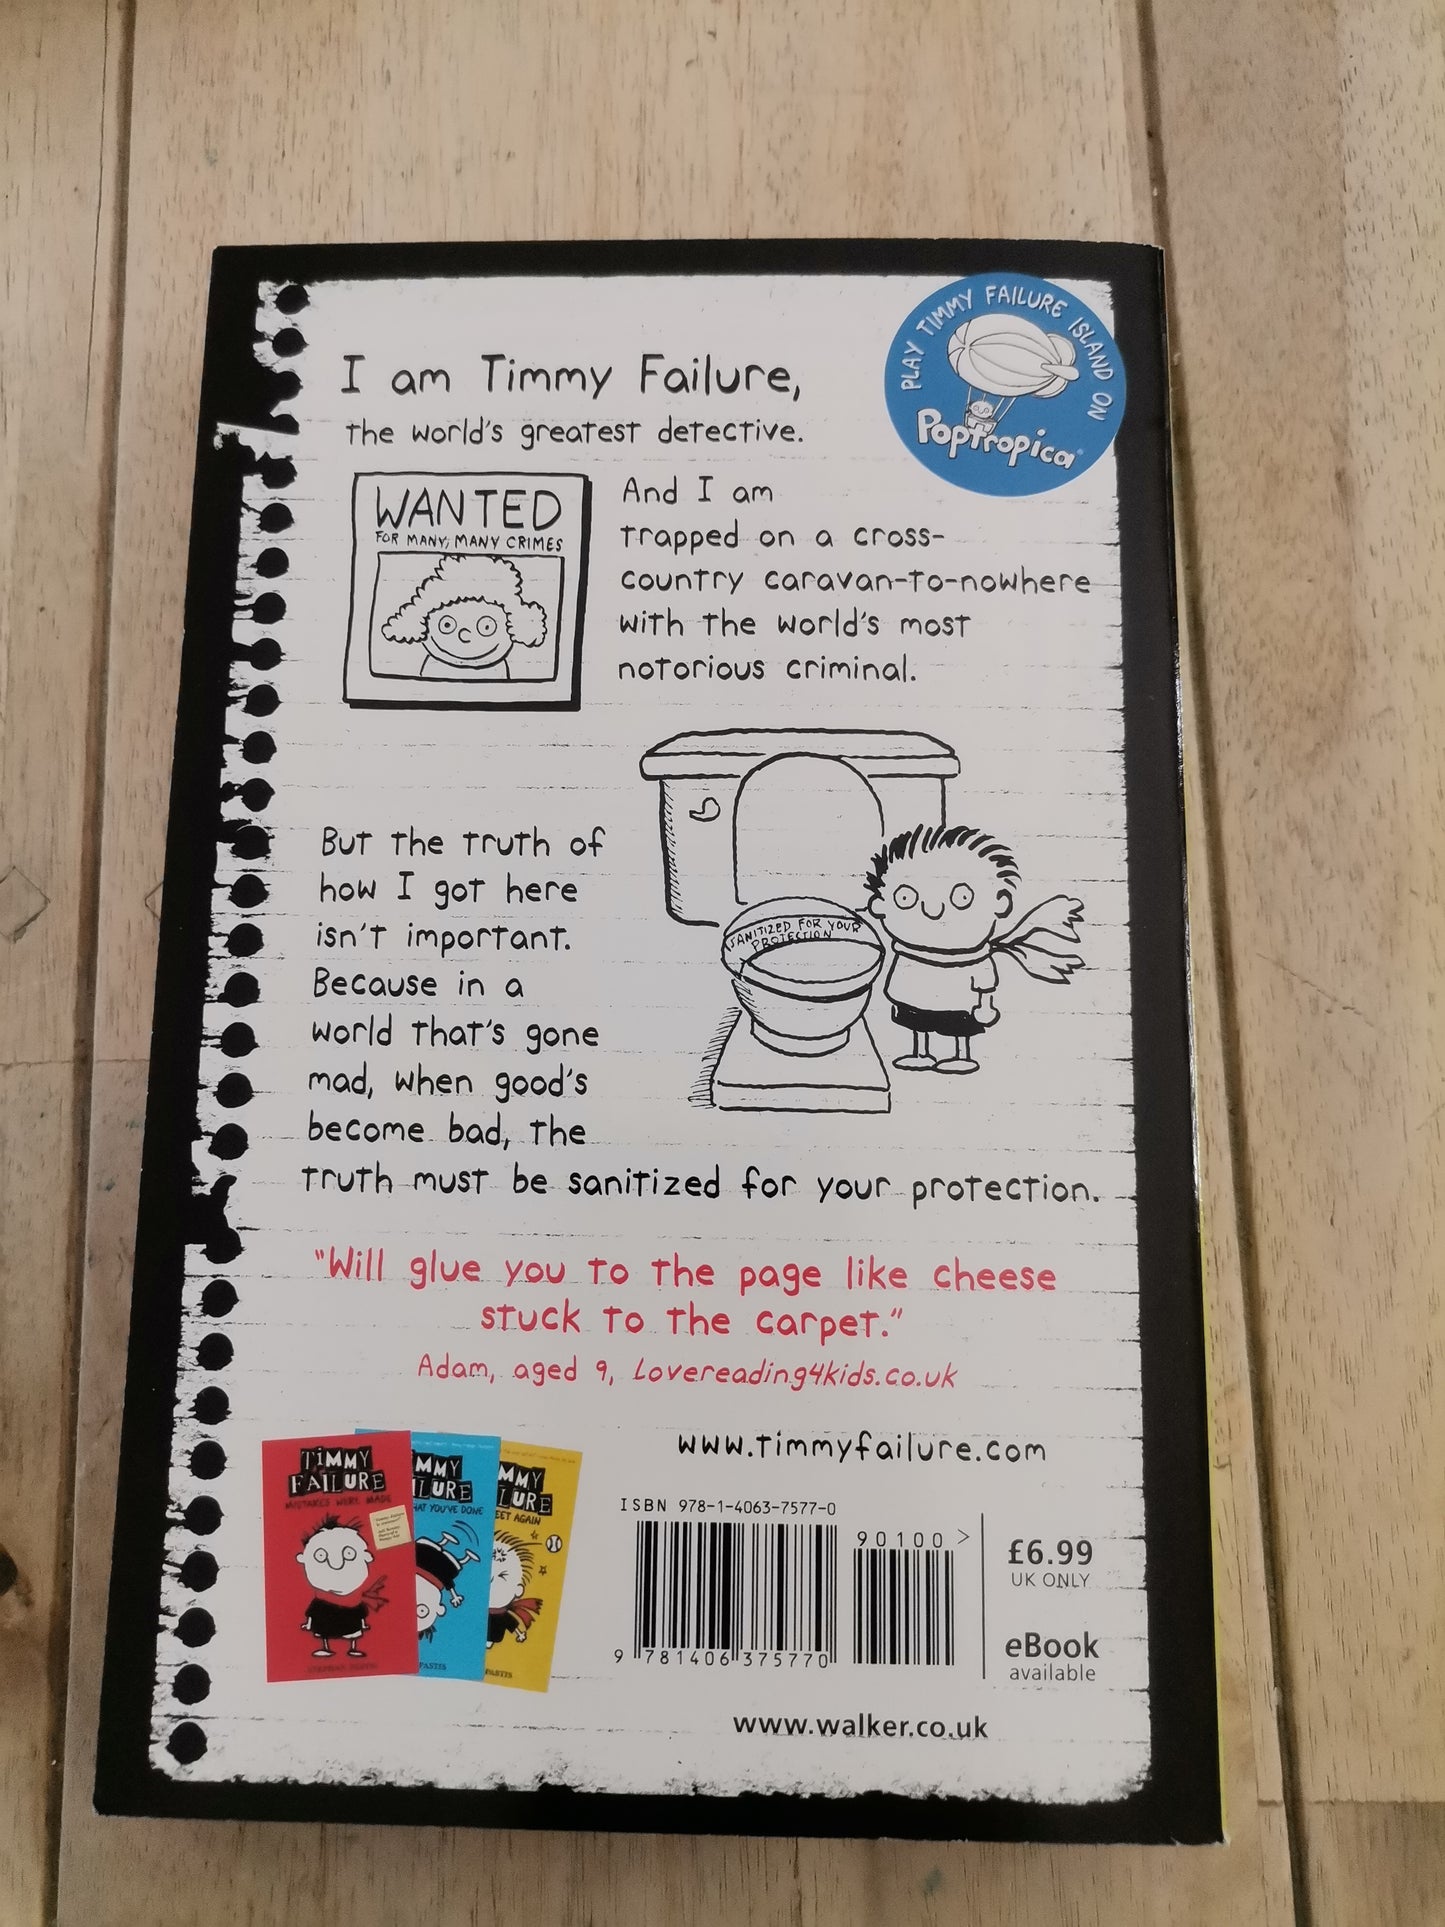 PLAY TIMMY FAILURE ISLAND ON
Poptropica
I am Timmy Failure,
the world's greatest detective.
WANTED
FOR MANY, MANY CRIMES
And I am
trapped on a cross-
country caravan-to-nowhere
with the world's most
notorious criminal.
SANITIZED FOR YOUR
PROTECTION
But the truth of
how I got here
isn't important.
Because in a
world that's gone
mad, when good's
become bad, the
truth must be sanitized for your protection.
"Will glue you to the page like cheese
stuck to the carpet."
Adam, aged 9, Lovereading4kids.co.uk
TIMMY
FAILURE
MISTAKES WERE MADE
MMY
LURE
HAT YOU'VE DONE
PASTIS
MMY
LURE
EET AGAIN
PASTIS
www.timmyfailure.com
ISBN 978-1-4063-7577-0
90100 >
9 781406 375770
£6.99
UK ONLY
eBook
available
www.walker.co.uk